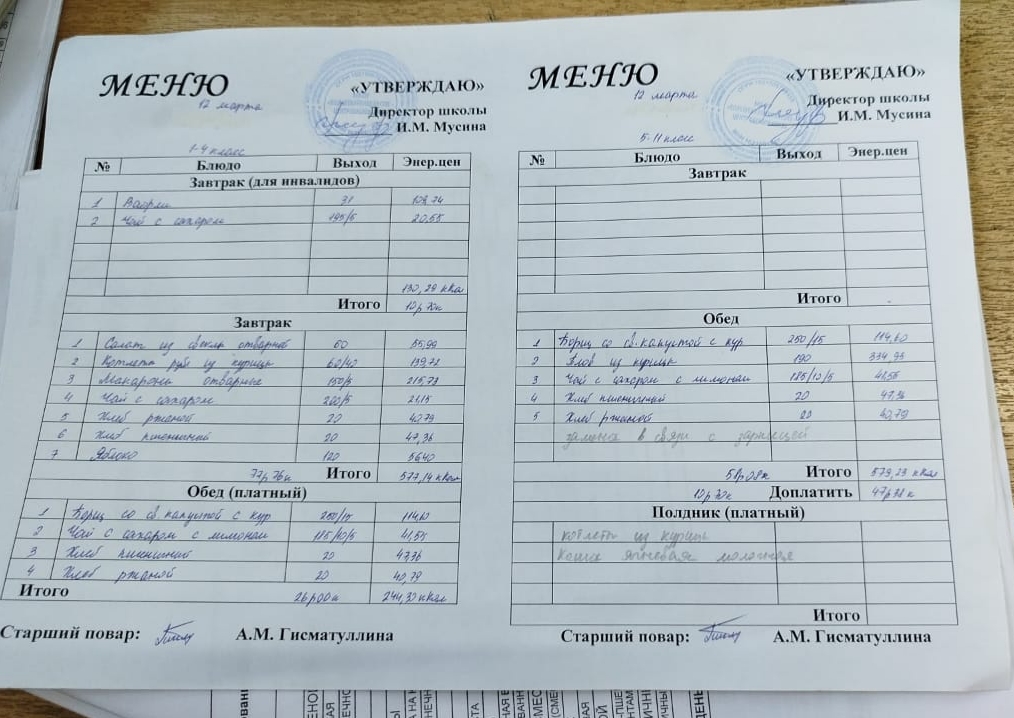 МЕНЮ
12 марта
«УТВЕРЖДАЮ»
Директор школы
И.М. Мусина
1-4 класс
№ Блюдо Выход Энер.цен
Завтрак (для инвалидов)
1 Вафли 31 109,74
2 Чай с сахаром 195/5 20,55
130,29 кКал
Итого 12р 70к
Завтрак
1 Салат из свеклы отварной 60 55,99
2 Котлета руб из курицы 60/40 139,72
3 Макароны отварные 150/5 215,73
4 Чай с сахаром 200/5 21,15
5 Хлеб ржаной 20 40,79
6 Хлеб пшеничный 20 47,36
7 Яблоко 120 56,40
77р 76к Итого 577,14 кКал
Обед (платный)
1 Борщ со св. капустой с кур 250/15 114,60
2 Чай с сахаром с лимоном 185/10/5 41,55
3 Хлеб пшеничный 20 47,36
4 Хлеб ржаной 20 40,79
Итого 26р00к 244,30 кКал
Старший повар: А.М. Гисматуллина
МЕНЮ
12 марта
«УТВЕРЖДАЮ»
Директор школы
И.М. Мусина
5-11 класс
№ Блюдо Выход Энер.цен
Завтрак
Итого
Обед
1 Борщ со св. капустой с кур 250/15 114,60
2 Плов из курицы 190 334,93
3 Чай с сахаром с лимоном 185/10/5 41,55
4 Хлеб пшеничный 20 47,36
5 Хлеб ржаной 20 40,79
замена в связи с зарницей
58р08к Итого 579,23 кКал
10р70к Доплатить 47р38к
Полдник (платный)
котлеты из курицы
Каша ячневая молочная
Итого
Старший повар: А.М. Гисматуллина